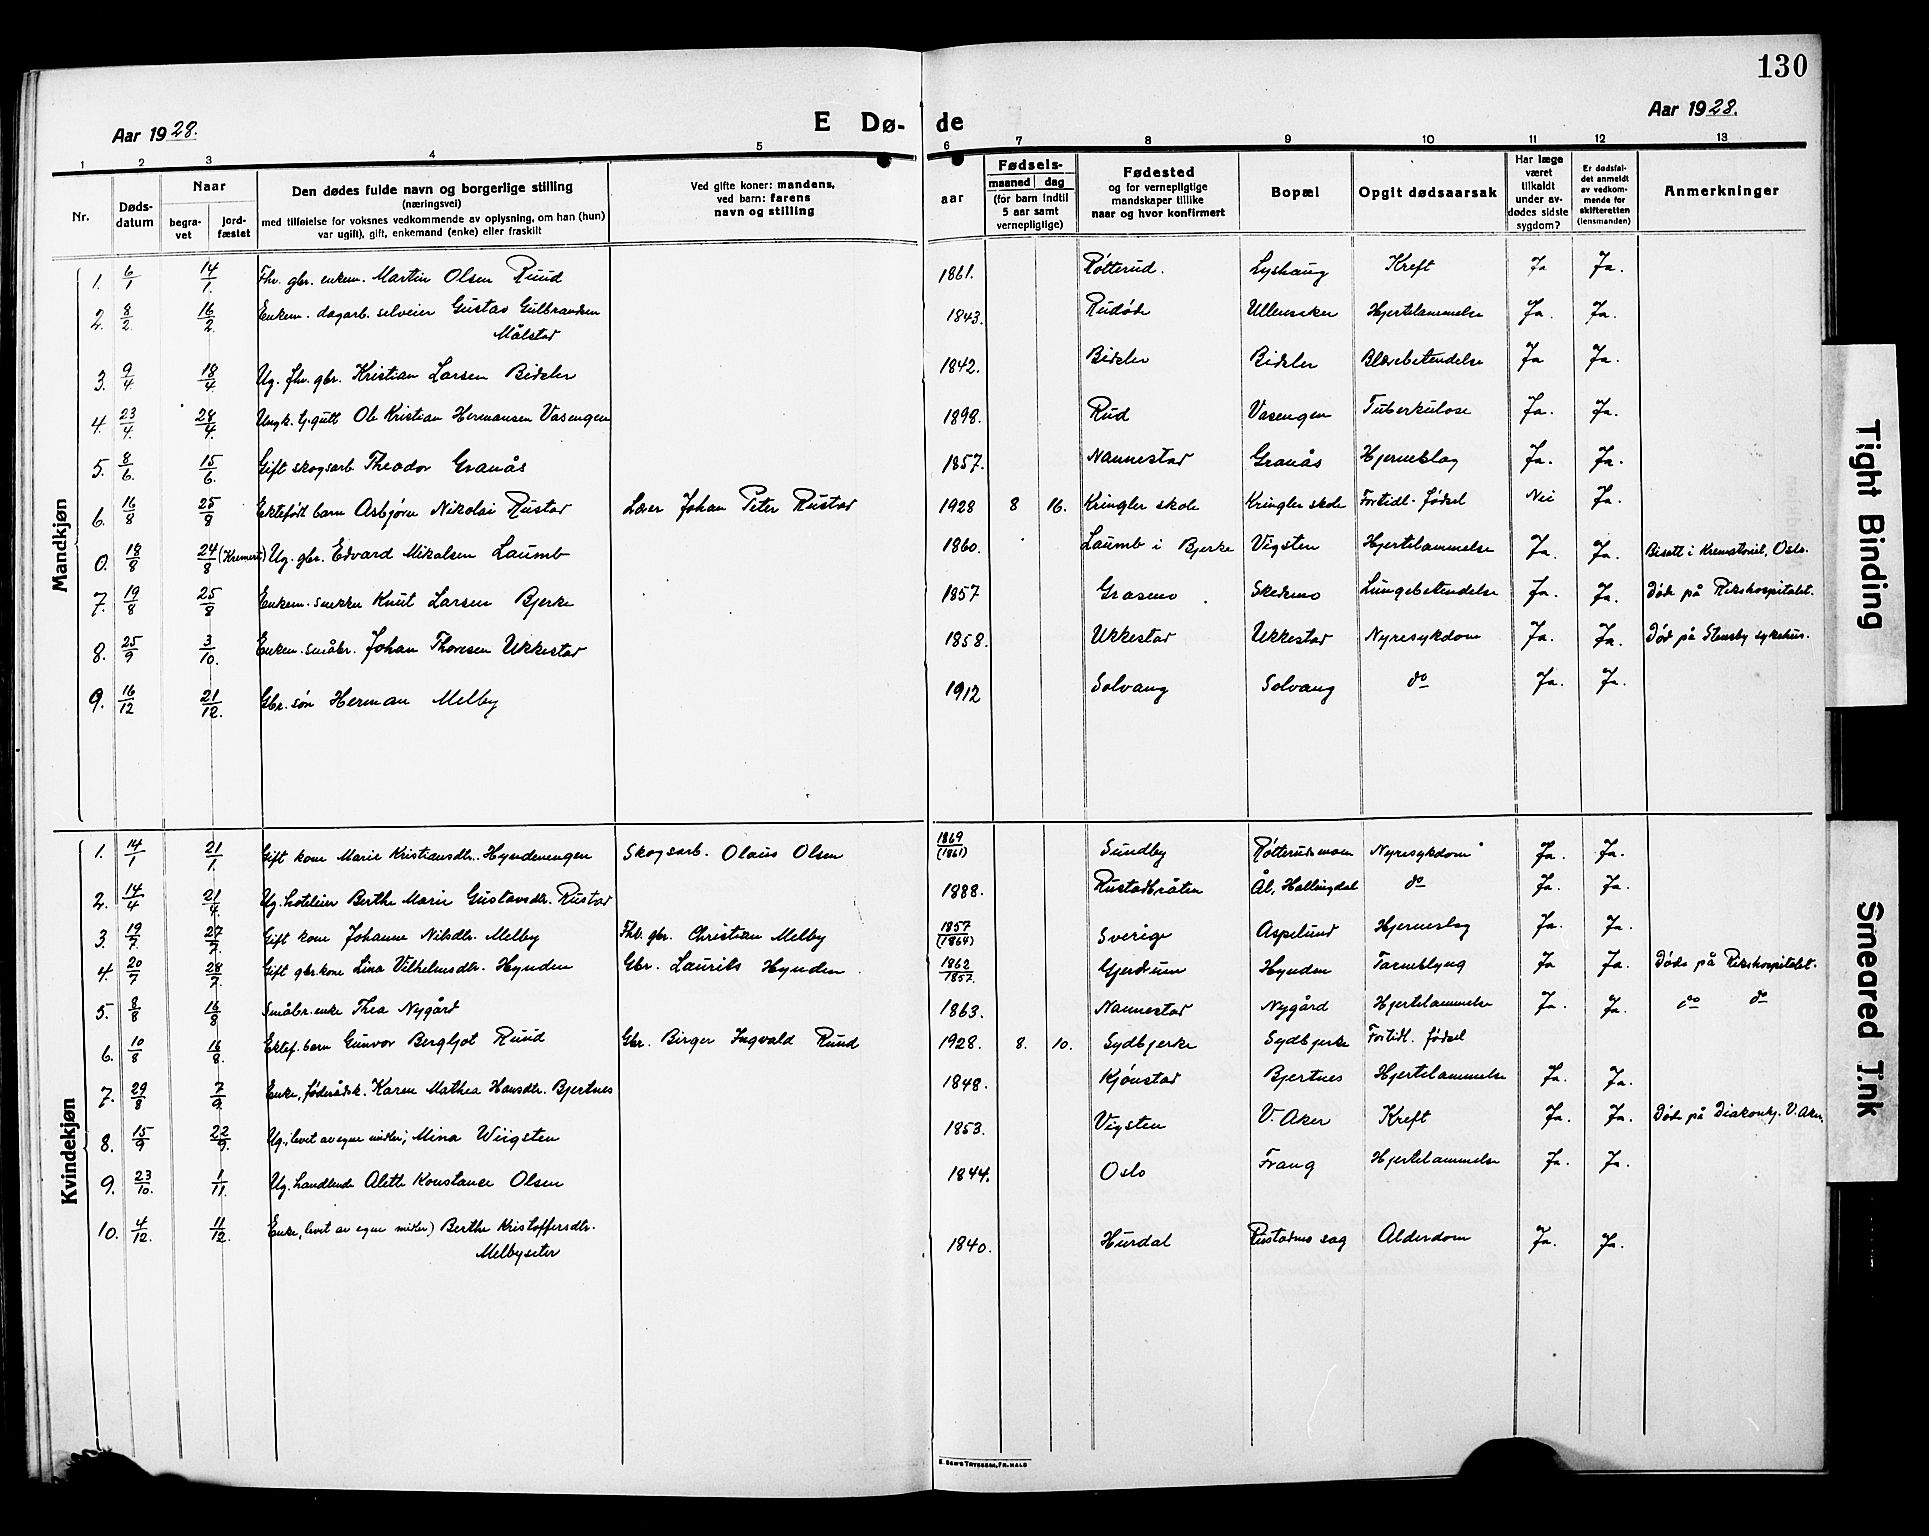 130
Aar 1928.
E Dø- de
Aar 1928.
1 2 3 4 5 6 7 8 9 10 11 12 13
Nr.
Døds-
datum
Naar
begra-
vet
jord-
fæstet
Den dødes fulde navn og borgerlige stilling
(næringsvei)
med tilføielse for voksnes vedkommende av oplysning, om han (hun)
var ugift, gift, enkemand (enke) eller fraskilt
Ved gifte koner: mandens,
ved barn: farens
navn og stilling
aar
Fødsels-
maaned dag
(for barn indtil
5 aar samt
vernepligtige)
Fødested
og for vernepligtige
mandskaper tillike
naar og hvor konfirmert
Bopæl
Opgit dødsaarsak
Har læge
været
tilkaldt
under av-
dødes sidste
sygdom?
Er dødsfal-
det anmeldt
av vedkom-
mende for
skifteretten
(lensmanden)
Anmerkninger
Mandkjøn
1. 6/1 14/1. Fhv. gbr. enkem. Martin Olsen Ruud 1861. Røtterud. Lyshaug Kreft Ja Ja.
2. 8/2 16/2. Enkem. dagarb. selveier Gustav Gulbrandsen 1843. Rudøde Ullensaker Hjertelammelse Ja. Ja.
Målstad
3. 9/4 18/4 Ug. fhv. gbr. Kristian Larsen Bideler 1842. Bideler Bideler Blærebetendelse Ja Ja.
4. 23/4 28/4. Ungk. g.gutt Ole Kristian Hermansen Vasengen 1898. Rud Vasengen Tuberkulose Ja. Ja.
5. 8/6 15/6. Gift skogsarb. Theodor Granås 1857. Nannestad Granås Hjerneslag Ja. Ja.
6. 16/8 25/8 Ektefødt barn Asbjørn Nikolai Rustad Lærer Johan Peter Rustad 1928 8 16. Kringler skole Kringler skole Fortidl. fødsel Nei Ja.
0. 18/8 24/8 (Kremert) Ug. gbr. Edvard Mikalsen Laumb 1860. Laumb i Bjerke Vigsten Hjertelammelse Ja. Ja. Bisatt i Krematoriet, Oslo.
7. 19/8 25/8 Enkem. snekker Knut Larsen Bjerke 1857 Grasmo Skedsmo Lungebetendelse Ja. Ja. Døde på Rikshospitalet.
8. 25/9 3/10. Enkem. småbr. Johan Thoresen Ukkestad 1858. Ukkestad Ukkestad Nyresykdom Ja. Ja. Død på Stensby sykehus.
9. 16/12 21/12. Gbr. søn Herman Melby 1912 Solvang Solvang do Ja. Ja.
Kvindekjøn
1. 14/1 21/1. Gift kone Marie Kristiansdtr. Hyndenengen Skogsarb. Olaus Olsen 1869 (1861) Sundby Røtterudsmoen Nyresykdom Ja. Ja.
2. 14/4 21/4. Ug. hoteleier Berthe Marie Gustavsdtr. Rustad 1888. Rustadbråten Ål, Hallingdal do Ja. Ja.
3. 19/7. 27/7 Gift kone Johanne Nilsdtr. Melby Fhv. gbr. Christian Melby 1857 (1864) Sverige Aspelund Hjerneslag Ja. Ja.
4. 20/7 28/7. Gift gbr.kone Lina Vilhelmsdtr. Hynden Gbr. Laurits Hynden. 1862 1857. Gjerdrum Hynden Tarmslyng Ja Ja. Døde på Rikshospitalet.
5. 8/8 16/8 Småbr. enke Thea Nygård 1863. Nannestad Nygård Hjertelammelse Ja. Ja. do do
6. 10/8 16/8. Ektef. barn Gunvor Bergljot Ruud Gbr. Birger Ingvald Ruud 1928. 8. 10. Sydbjerke Sydbjerke Fortidl. fødsel
7. 29/8 7/9. Enke, føderådsk. Karen Mathea Hansdtr. Bjertnes 1848. Kjønstad Bjertnes Hjertelammelse Ja. Ja.
8. 15/9 22/9. Ug., levet av egne midler; Mina Wiigsten 1853. Vigsten V. Aker Kreft Ja. Ja. Døde på Diakonhj. V. Aker.
9. 23/10. 1/11. Ug. handlende Alette Konstance Olsen 1844. Oslo Frang Hjertelammelse Ja. Ja.
10. 4/12. 11/12. Enke, levet av egne midler) Berthe Kristoffersdtr. 1840. Hurdal Rustadmo sag Alderdom Ja. Ja.
Melbyseter
Tight Binding
Smeared Ink